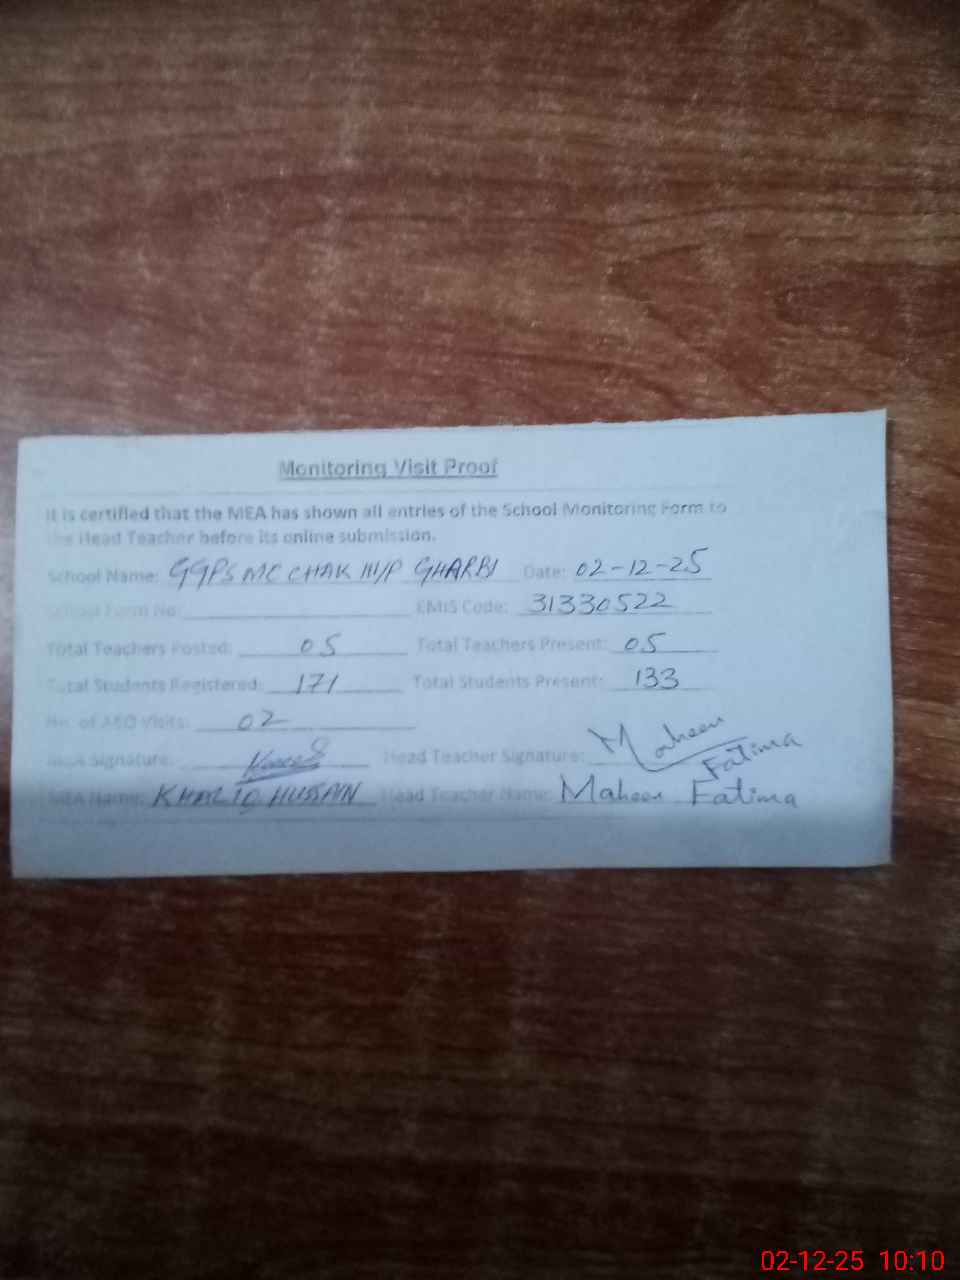 Monitoring Visit Proof
It is certified that the MEA has shown all entries of the School Monitoring Form to
the Head Teacher before its online submission.
School Name: GGPS MC CHAK 111/P GHARBI Date: 02-12-25
School Form No: EMIS Code: 31330522
Total Teachers Posted: 05 Total Teachers Present: 05
Total Students Registered: 171 Total Students Present: 133
No. of AEO Visits: 02
MEA Signature: Head Teacher Signature: Maheen Fatima
MEA Name: KHALID HUSAIN Head Teacher Name: Maheen Fatima
02-12-25 10:10